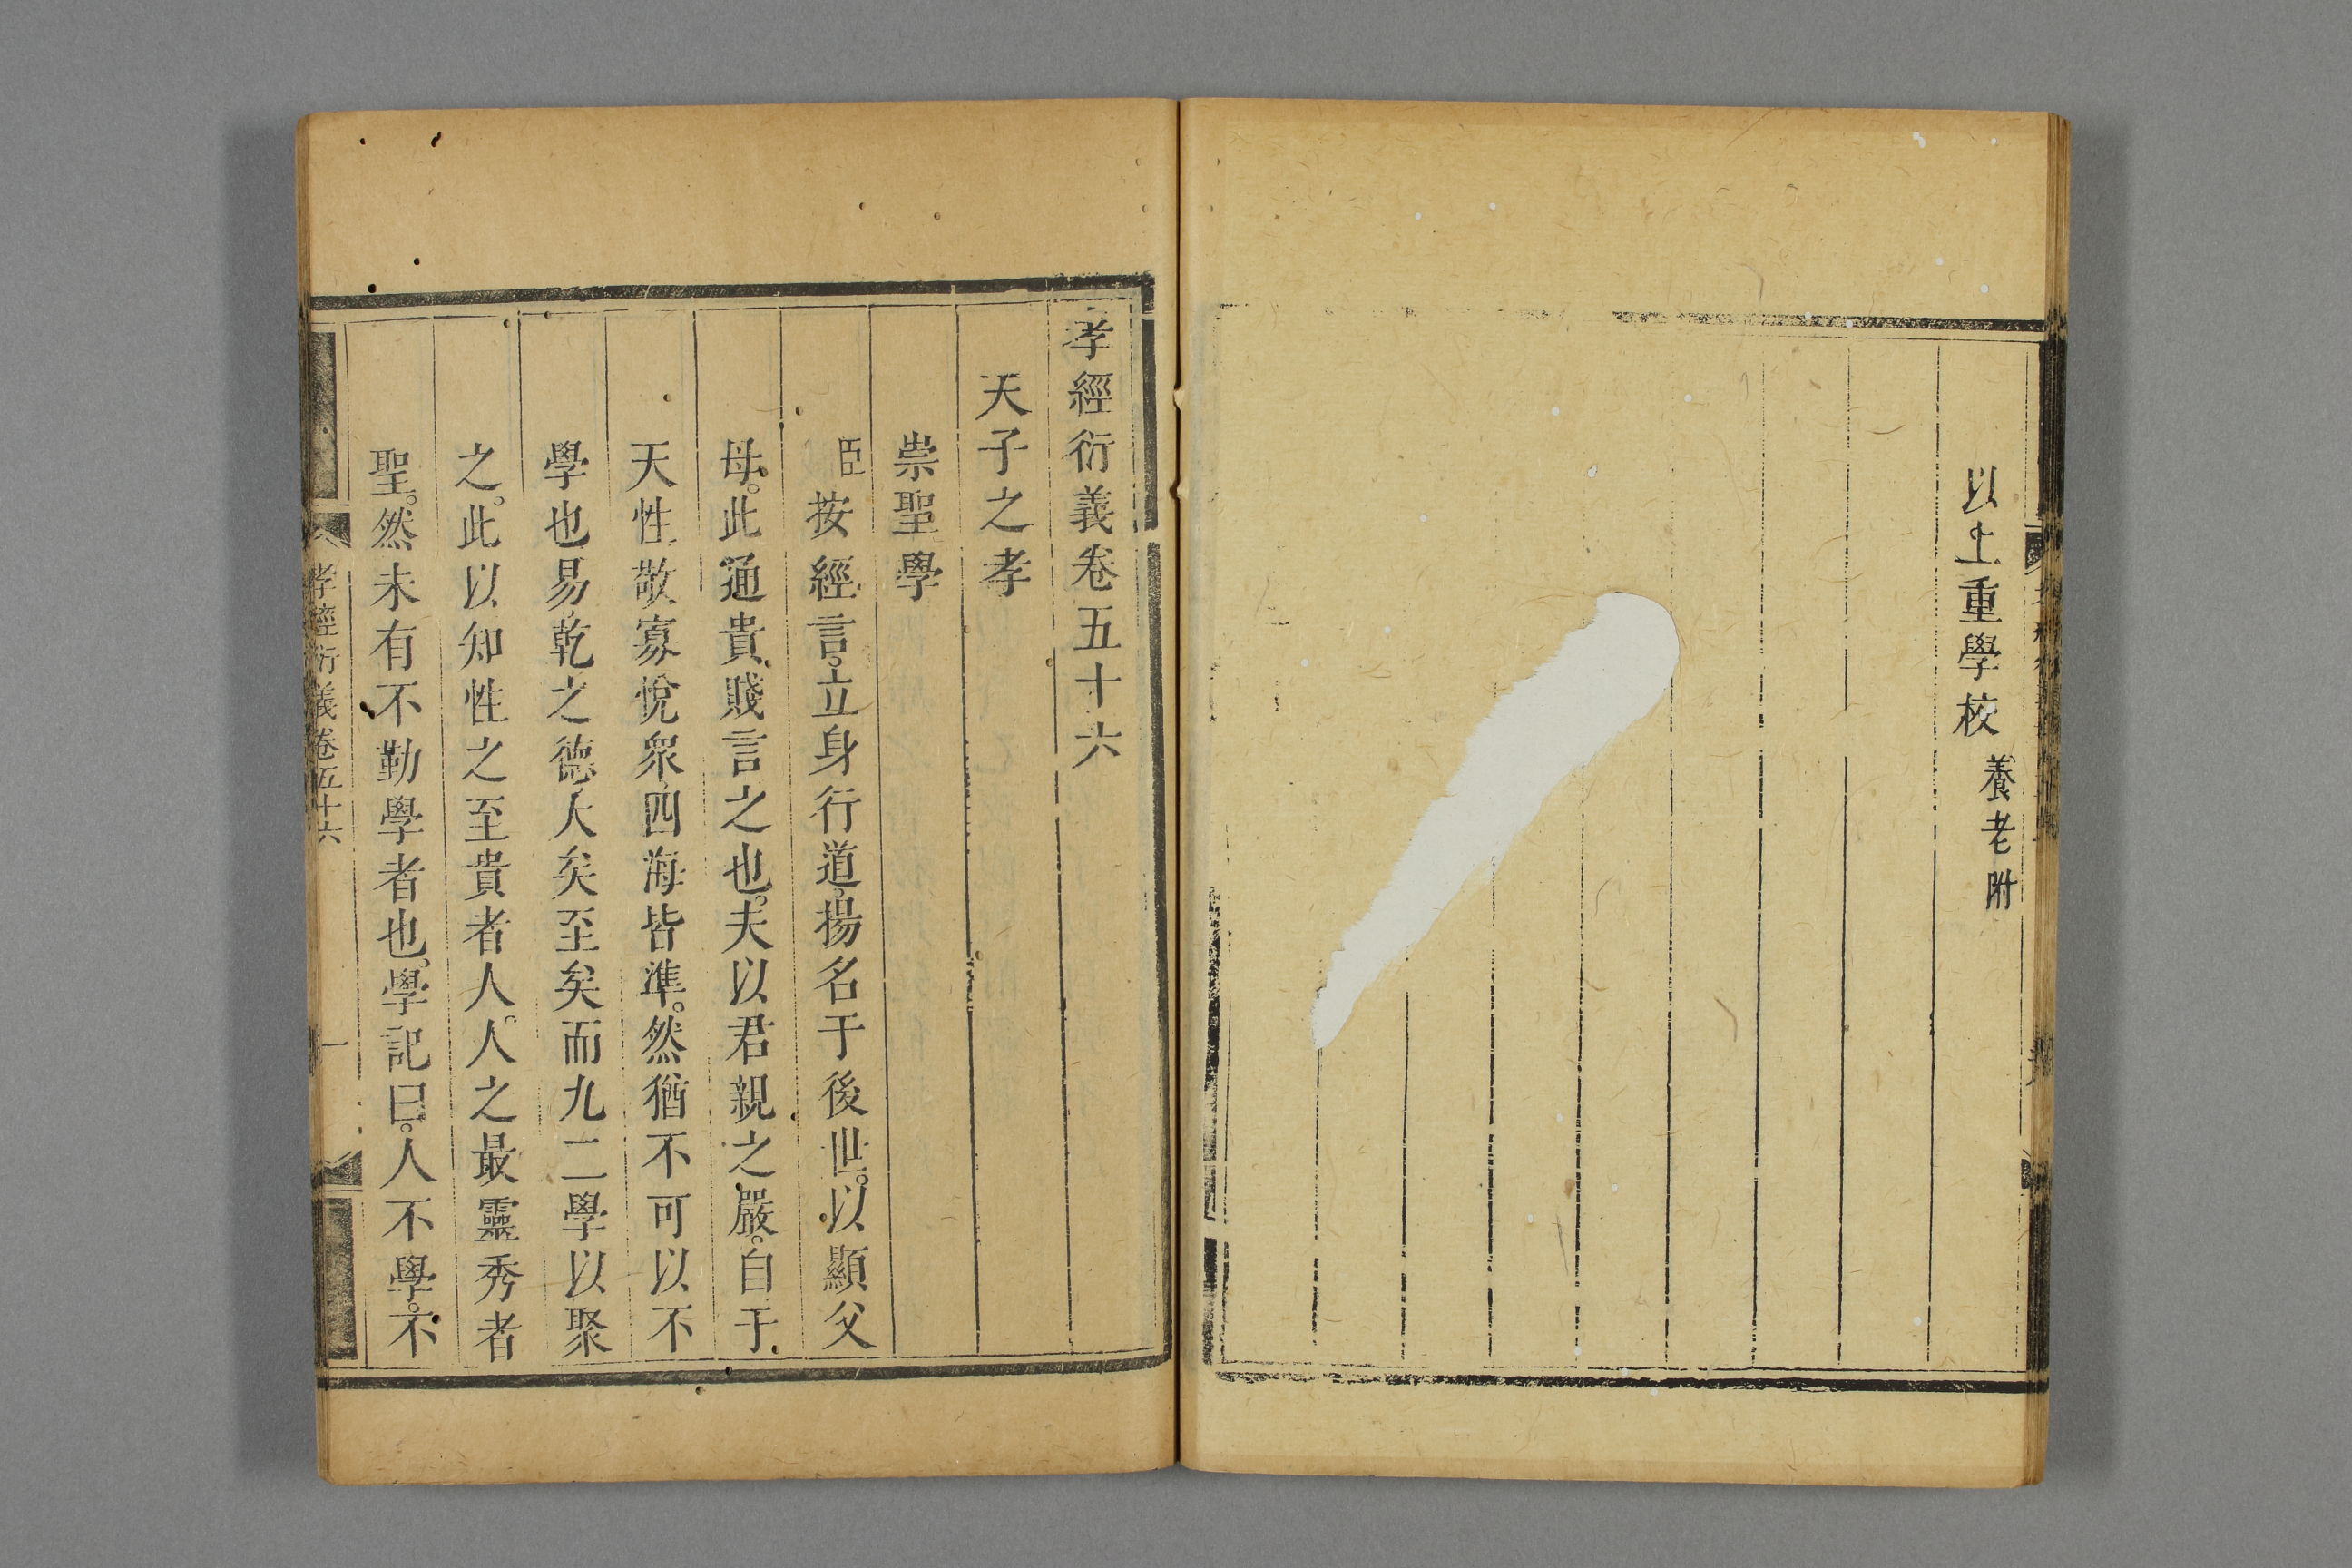 以上重學校養老附
孝經衍義卷五十六
天子之孝
崇聖學
臣按經言。立身行道。揚名于後世。以顯父
母。此通貴賤言之也。夫以君親之嚴。自于
天性。敬寡悅衆。四海皆準。然猶不可以不
學也。易乾之德。大矣至矣。而九二學以聚
之。此以知性之至貴者人。人之最靈秀者
聖。然未有不勤學者也。學記曰。人不學。不
孝經衍義卷五十六 一